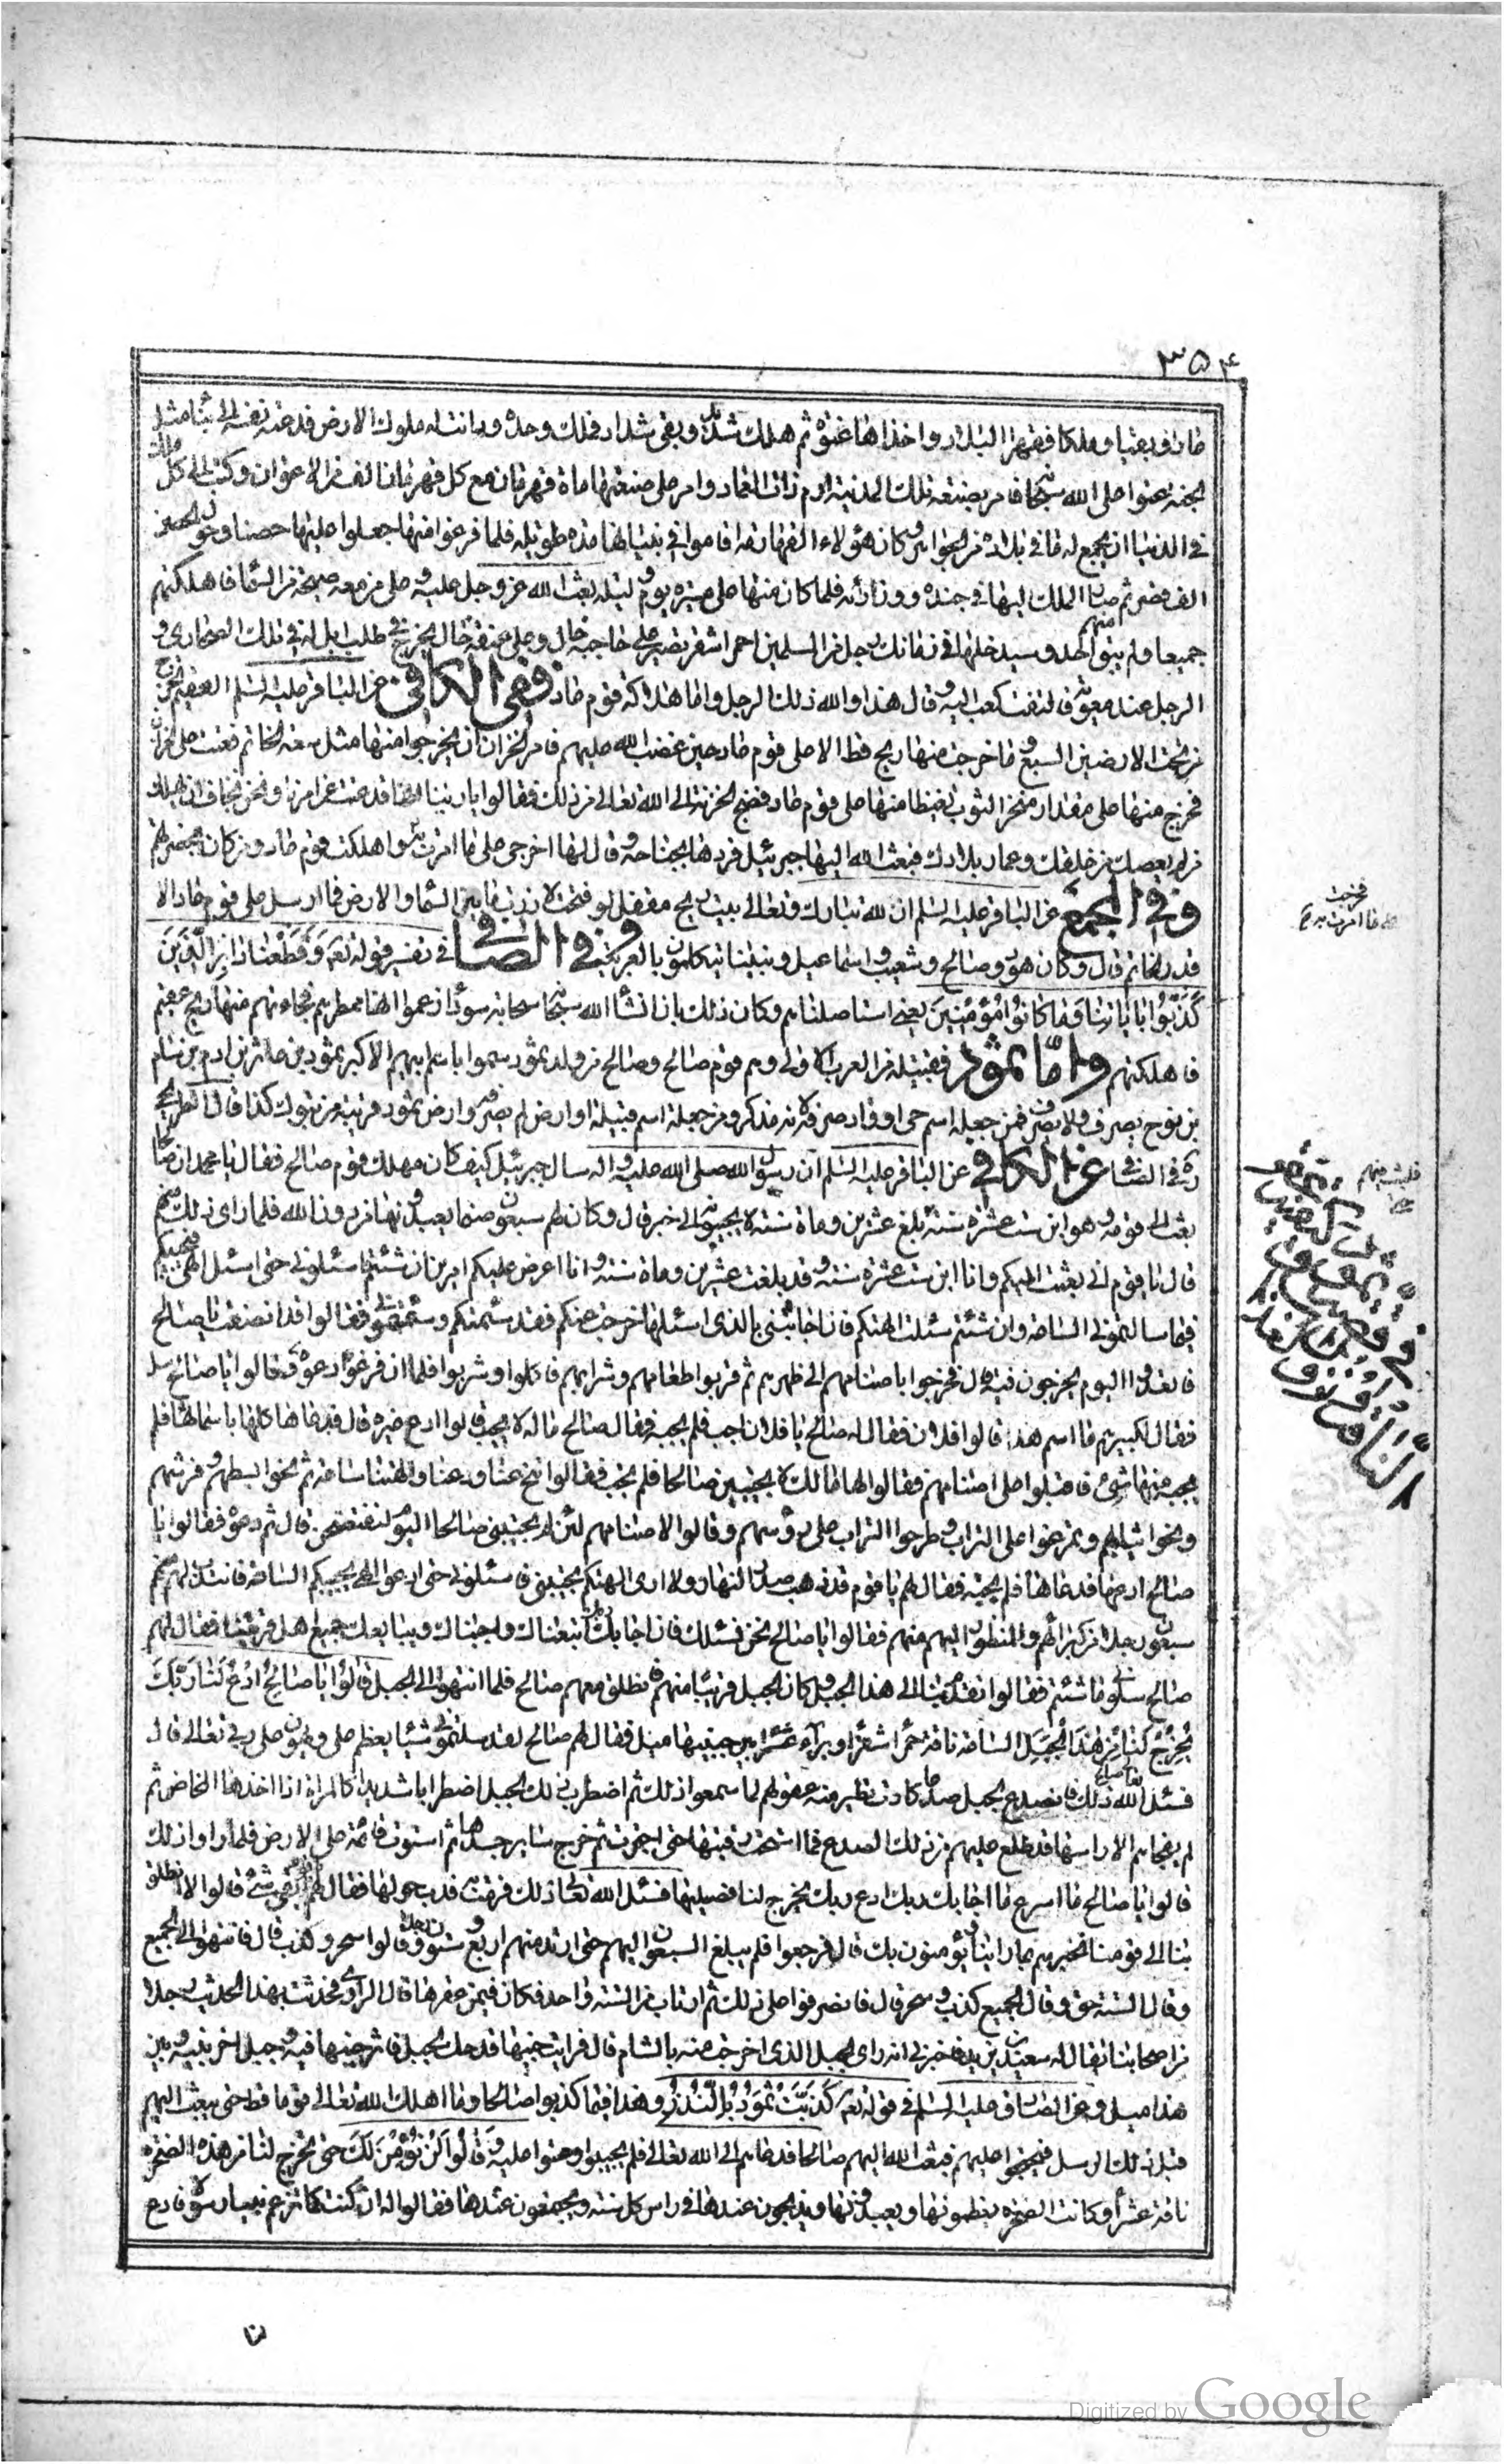 ۳۵۴
عاد فبقيا وملكا فقهرا البلاد واخذاها عنوة ثم هلك شديد وبقى شداد فملك وحده ودانت له ملوك الارض فدعته نفسه الى بناء مثل
الجنة عتوا على الله سبحانه فامر بصنعة تلك المدينة ارم ذات العماد وامر على صنعتها مائة قهرمان مع كل قهرمان الف من الاعوان وكتب الى كل ملك
فى الدنيا ان يجمع له ما فى بلاده من الجواهر وكان هؤلاء القهارمة اقاموا فى بنيانها مدة طويلة فلما فرغوا منها جعلوا عليها حصنا وحول الحصن
الف قصر ثم صار الملك اليها فى جنده ووزرائه فلما كان منها على مسيرة يوم وليلة بعث الله عز وجل عليه وعلى من معه صيحة من السماء فاهلكتهم
جميعا ولم يبق منهم احد وسيدخلها فى زمانك رجل من المسلمين احمر اشقر قصير على حاجبه خال وعلى عنقه خال يخرج فى طلب ابل له فى تلك الصحارى و
الرجل عند معوية فالتفت كعب اليه وقال هذا والله ذلك الرجل واما هلاكة قوم عاد ففى الكافى عن الباقر عليه السلم الريح العقيم تخرج
من تحت الارضين السبع وما خرجت منها ريح قط الا على قوم عاد حين غضب الله عليهم فامر الخزان ان يخرجوا منها مثل سعة الخاتم فعتت على الخزان
فخرج منها على مقدار منخر الثور تغيظا منها على قوم عاد فضج الخزنة الى الله تعالى من ذلك فقالوا يا ربنا انها قد عتت عن امرنا ونحن نخاف ان تهلك
من لم يعصك من خلقك وعمار بلادك فبعث الله اليها جبرئيل فردها بجناحه وقال لها اخرجى على ما امرت به واهلكت قوم عاد ومن كان بحضرتهم
وفى المجمع عن الباقر عليه السلم ان لله تبارك وتعالى بيت ريح مقفل لو فتح لاذرت ما بين السماء والارض فما ارسل على قوم عاد الا
قدر الخاتم قال وكان هود وصالح وشعيب واسماعيل ونبينا يتكلمون بالعربية وفى الصافى فى تفسير قوله تعه وقطعنا دابر الذين
كذبوا باياتنا وما كانوا مؤمنين يعنى استاصلناهم وكان ذلك بان انشا الله سبحانه سحابة سوداء زعموا انها ممطرهم فجاءتهم منها ريح عقيم
فاهلكتهم واما ثمود فقبيلة من العرب الاولى وهم قوم صالح وصالح من ولد ثمود سموا باسم ابيهم الاكبر ثمود بن عاثر بن ادم بن سام
بن نوح يصرف ولا يصرف فمن جعله اسم حى او واد صرفه لانه مذكر ومن جعله اسم قبيلة او ارض لم يصرفه وارض ثمود قريبة من تبوك كذا قال الطريحى
ره فى الصافى عن الكافى عن الباقر عليه السلم ان رسول الله صلى الله عليه واله سال جبرئيل كيف كان مهلك قوم صالح فقال يا محمد ان صالحا
بعث الى قومه وهو ابن ست عشرة سنة بلغ عشرين ومائة سنة لا يجيبونه الى خير قال وكان لهم سبعون صنما يعبدونها من دون الله فلما راى ذلك منهم
قال يا قوم انى بعثت اليكم وانا ابن ست عشرة سنة وقد بلغت عشرين ومائة سنة وانا اعرض عليكم امرين ان شئتم فاسئلونى حتى اسئل الهى فيجيبكم
فيما سالتمونى الساعة وان شئتم سئلت الهتكم فان اجابتنى بالذى اسئلها خرجت عنكم فقد سئمتكم وسئمتمونى فقالوا قد انصفت يا صالح
فاتعدوا اليوم يخرجون فيه قال فخرجوا باصنامهم الى ظهرهم ثم قربوا طعامهم وشرابهم فاكلوا وشربوا فلما ان فرغوا دعوه فقالوا يا صالح سل
فقال لكبيرهم ما اسم هذا قالوا فلان فقال له صالح يا فلان اجب فلم يجبه فقال صالح ما له لا يجيب قالوا ادع غيره قال فدعاها كلها باسمائها فلم
يجبه منها شئ فاقبلوا على اصنامهم فقالوا لها ما لك لا تجيبين صالحا فلم تجب فقالوا تنح عنا ودعنا والهتنا ساعة ثم نحوا بسطهم وفرشهم
ونحوا ثيابهم وتمرغوا على التراب وطرحوا التراب على رؤسهم وقالوا لاصنامهم لئن لم تجيبين صالحا اليوم لتفتضحن قال ثم دعوه فقالوا يا
صالح ادعها فدعاها فلم تجبه فقال لهم يا قوم قد ذهب صدر النهار ولا ارى الهتكم تجيبنى فاسئلونى حتى ادعو الهى يجيبكم الساعة فانتدب لهم منهم
سبعون رجلا من كبرائهم والمنظور اليهم منهم فقالوا يا صالح نحن نسئلك فان اجابك ربك اتبعناك واجبناك ويبايعك جميع اهل قريتنا فقال لهم
صالح سلونى ما شئتم فقالوا تقدم بنا الى هذا الجبل وكان الجبل قريبا منهم فانطلق معهم صالح فلما انتهوا الى الجبل قالوا يا صالح ادع لنا ربك
يخرج لنا من هذا الجبل الساعة ناقة حمراء شقراء وبراء عشراء بين جنبيها ميل فقال لهم صالح لقد سئلتمونى شيئا يعظم على ويهون على ربى تعالى قال
فسئل الله تعالى صالح ذلك فانصدع الجبل صدعا كادت تطير منه عقولهم لما سمعوا ذلك ثم اضطرب ذلك الجبل اضطرابا شديدا كالمراة اذا اخذها المخاض ثم
لم يفجاهم الا راسها قد طلع عليهم من ذلك الصدع فما استتمت رقبتها حتى اجترت ثم خرج سائر جسدها ثم استوت قائمة على الارض فلما راوا ذلك
قالوا يا صالح ما اسرع ما اجابك ربك ادع ربك يخرج لنا فصيلها فسئل الله تعالى ذلك فرمت به فدب حولها فقال لهم ابقى شئ قالوا لا انطلق
بنا الى قومنا نخبرهم بما راينا يؤمنون بك قال فرجعوا فلم يبلغ السبعون اليهم حتى ارتد منهم اربع وستون رجلا وقالوا سحر وكذب قال فانتهوا الى الجميع
وقال الستة حق وقال الجميع كذب وسحر قال فانصرفوا على ذلك ثم ارتاب من الستة واحد فكان فيمن عقرها قال الراوى فحدثت بهذا الحديث رجلا
من اصحابنا يقال له سعيد بن يزيد فاخبرنى انه راى الجبل الذى اخرجت منه بالشام قال فرايت جنبها قد حك الجبل فاثر جنبها فيه وجبل اخر بينه وبين
هذا ميل وعن الصادق عليه السلم فى قوله تعه كذبت ثمود بالنذر وهذا فيما كذبوا صالحا وما اهلك الله تعالى قوما قط حتى يبعث اليهم
قبل ذلك الرسل فيحتجوا عليهم فبعث الله اليهم صالحا فدعاهم الى الله تعالى فلم يجيبوا وعتوا عليه وقالوا لن نؤمن لك حتى تخرج لنا من هذه الصخرة
ناقة عشراء وكانت الصخرة يعظمونها ويعبدونها ويذبحون عندها فى راس كل سنة ويجتمعون عندها فقالوا له ان كنت كما تزعم نبيا رسولا فادع
فخرجت
على ما امرت به
فلبث فيهم